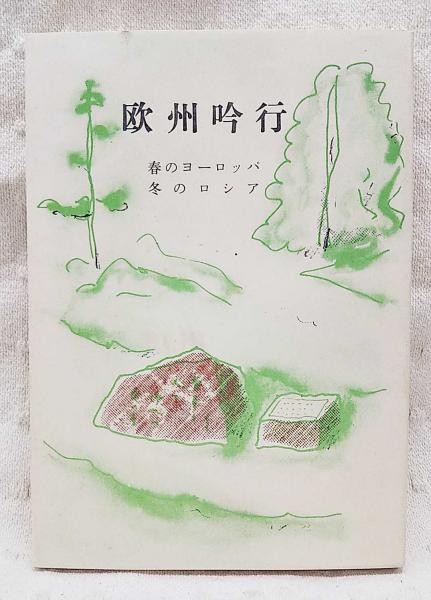 欧州吟行
春のヨーロッパ
冬のロシア